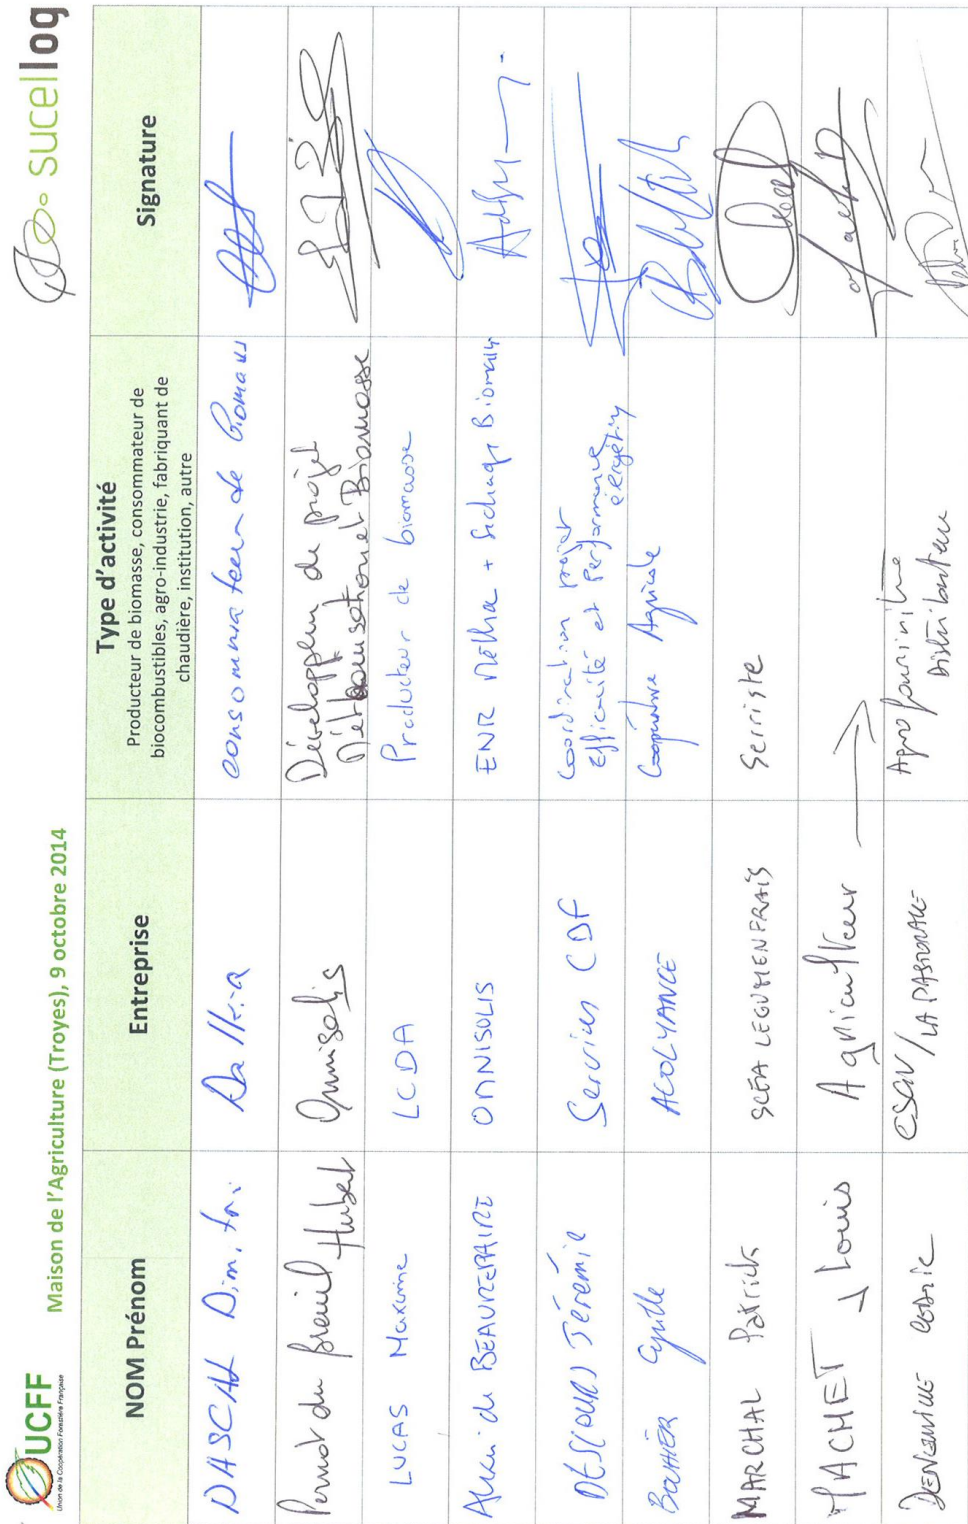 UCFF
Union de la Coopération Forestière Française
Maison de l'Agriculture (Troyes), 9 octobre 2014
sucellog
NOM Prénom
Entreprise
Type d'activité
Producteur de biomasse, consommateur de
biocombustibles, agro-industrie, fabriquant de
chaudière, institution, autre
Signature
DASCAL Dimitri
Dalkia
consommateur de Biomasse
Pernot du Breuil Hubert
Omnisolis
Développeur de projet
Méthanisation et Biomasse
LUCAS Maxime
LCDA
Producteur de biomasse
de BEAUREPAIRE
OMNISOLIS
ENR Métha + Séchage Biomasse
DESCOURS Jérémie
Services CDF
Coordination projet
Efficacité et Performance
énergétique
Cyrille
ACOLYANCE
Coopérative Agricole
MARCHAL Patrick
SCEA LEGUMENFRAIS
Serriste
MACHET J Louis
Agriculteur
Cédric
/ LA PASTORALE
Agro fourniture
Distributeur